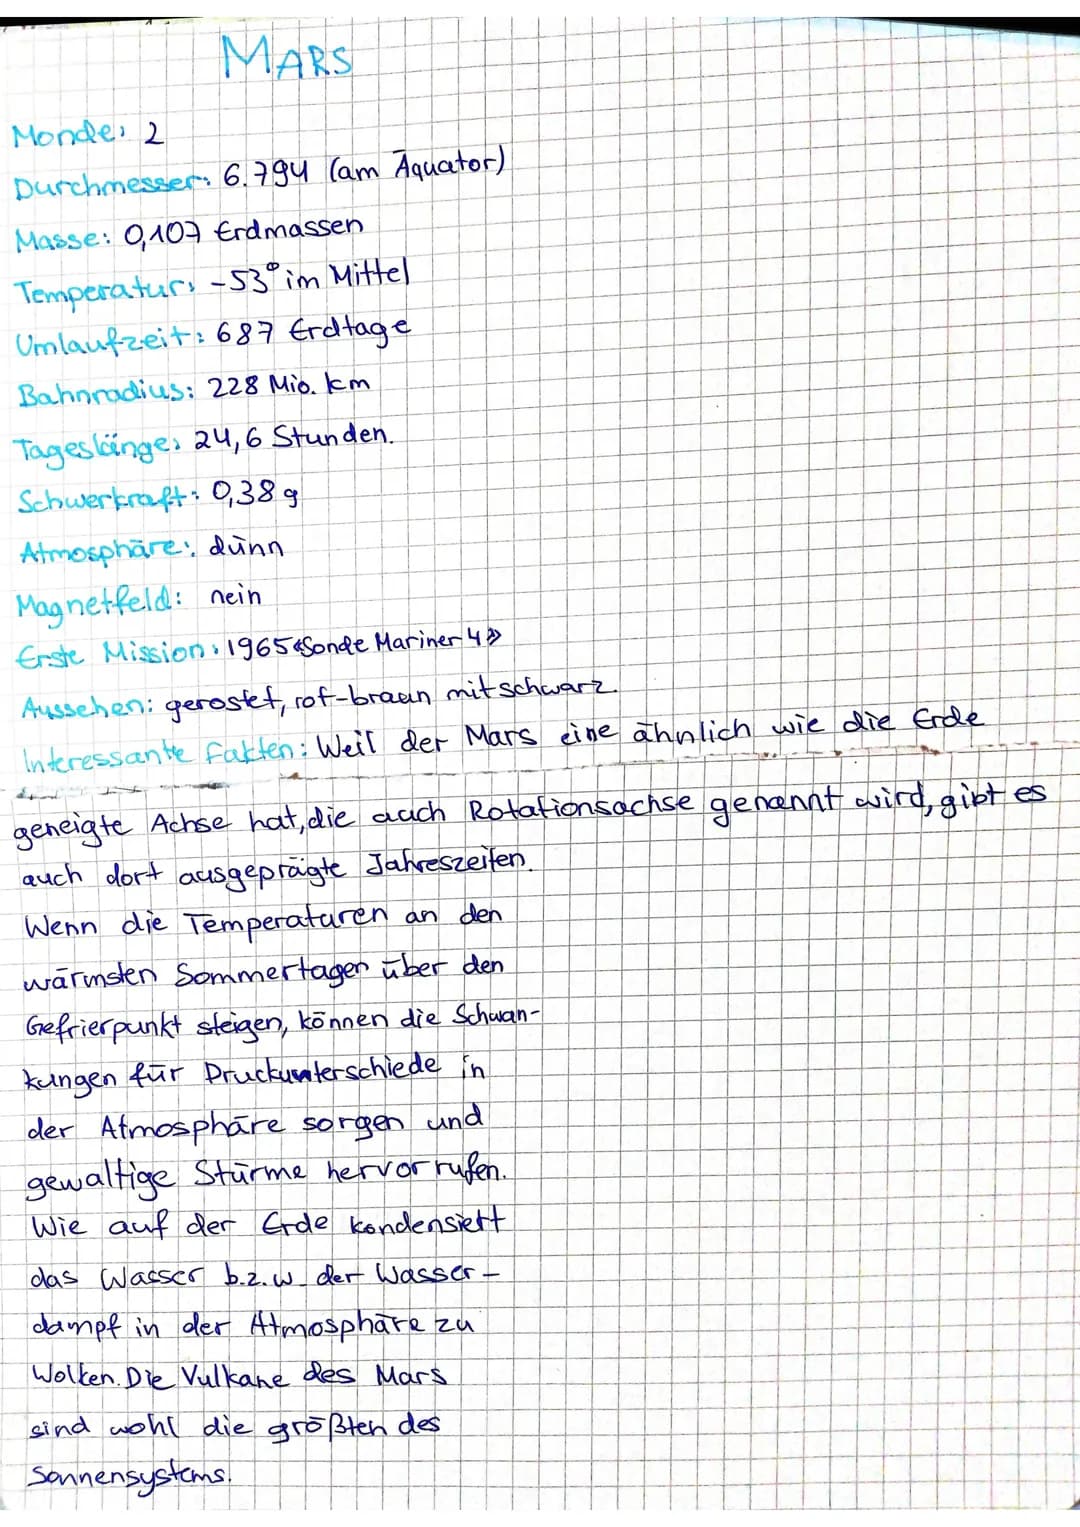 MARS
Monde: 2
Durchmesser: 6.794 (am Äquator)
Masse: 0,107 Erdmassen
Temperatur: -53° im Mittel
Umlaufzeit: 687 Erdtage
Bahnradius: 228 Mio. km
Tageslänge: 24,6 Stunden.
Schwerkraft: 0,38 g
Atmosphäre: dünn
Magnetfeld: nein
Erste Mission: 1965 «Sonde Mariner 4»
Aussehen: gerostet, rot-braun mit schwarz.
Interessante Fakten: Weil der Mars eine ähnlich wie die Erde
geneigte Achse hat, die auch Rotationsachse genannt wird, gibt es
auch dort ausgeprägte Jahreszeiten.
Wenn die Temperaturen an den
wärmsten Sommertagen über den
Gefrierpunkt steigen, können die Schwan-
kungen für Druckunterschiede in
der Atmosphäre sorgen und
gewaltige Stürme hervorrufen.
Wie auf der Erde kondensiert
das Wasser b.z.w. der Wasser-
dampf in der Atmosphäre zu
Wolken. Die Vulkane des Mars
sind wohl die größten des
Sonnensystems.